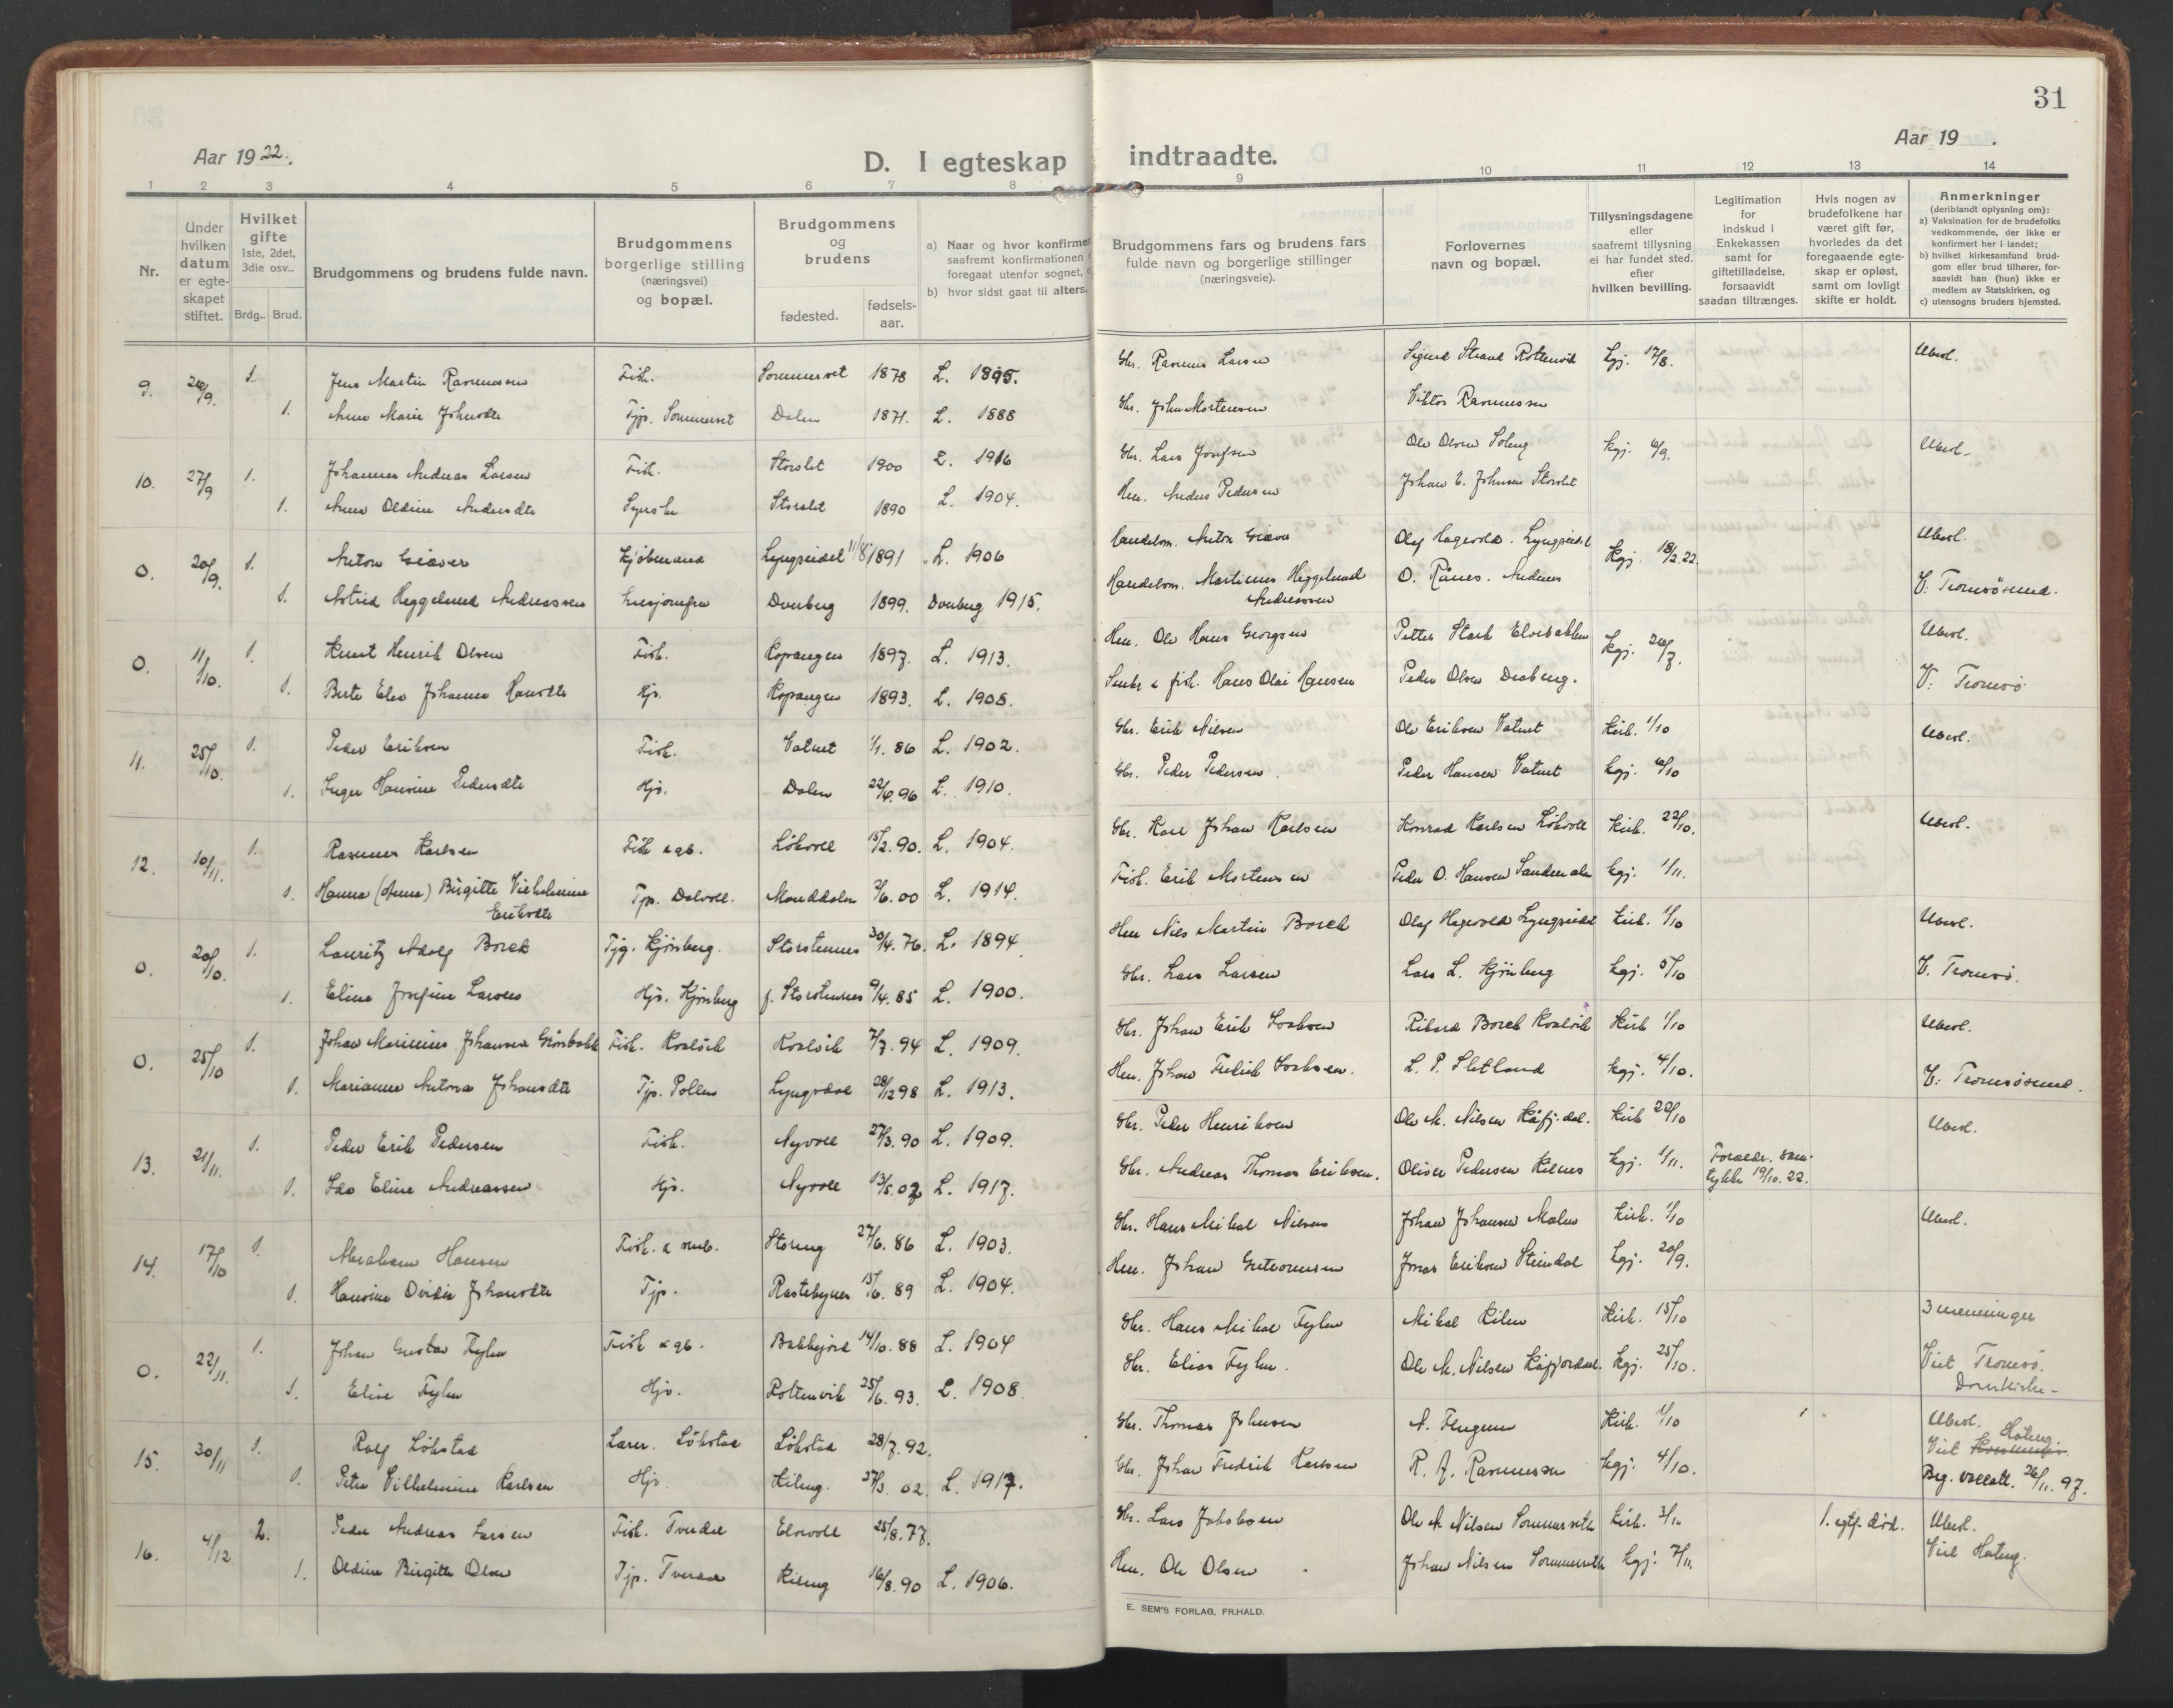 31
Aar 1922.
D. I egteskap indtraadte.
Aar 19 .
1 2 3 4 5 6 7 8 9 10 11 12 13 14
Nr.
Under
hvilken
datum
er egte-
skapet
stiftet.
Hvilket
gifte
1ste, 2det,
3die osv..
Brdg.. Brud.
Brudgommens og brudens fulde navn.
Brudgommens
borgerlige stilling
(næringsvei)
og bopæl.
Brudgommens
og
brudens
fødested.
fødsels-
aar.
a) Naar og hvor konfirme
saafremt konfirmationen
foregaat utenfor sognet,
b) hvor sidst gaat til alters.
Brudgommens fars og brudens fars
fulde navn og borgerlige stillinger
(næringsveie).
Forlovernes
navn og bopæl.
Tillysningsdagene
eller
saafremt tillysning
ei har fundet sted,
efter
hvilken bevilling.
Legitimation
for
indskud i
Enkekassen
samt for
giftetilladelse,
forsaavidt
saadan tiltrænges.
Hvis nogen av
brudefolkene har
været gift før,
hvorledes da det
foregaaende egte-
skap er opløst,
samt om lovligt
skifte er holdt.
Anmerkninger
(deriblandt oplysning om):
a) Vaksination for de brudefolks
vedkommende, der ikke er
konfirmert her i landet;
b) hvilket kirkesamfund brud-
gom eller brud tilhører, for-
saavidt han (hun) ikke er
medlem av Statskirken, og
c) utensogns bruders hjemsted.
9. 1. Jens Martin Rasmussen Fisk. Sommerset 1878 L. 1895. Gbr. Rasmus Larsen Sigurd Strand Rottenvik kgj. 17/8. Ubesl.
1. Anna Marie Johnsdtr Tjp. Sommerset Dalen 1871. L. 1888 Gbr. John Mortensen Viktor Rasmussen
10. 27/9 1. Johannes Andreas Larsen Fisk. Storslet 1900 L. 1916 Gbr. Lars Josefsen Ole Olsen Soleng kgj. 6/9. Ubesl.
1. Anna Oldine Andersdtr Syerske Storslet 1890 L. 1904. Hm. Anders Pedersen Johan E. Johnsen Storslet
0. 20/9. 1. Anton Giæver Kjøbmand Lyngseidet 11/8 1891 L. 1906 Handelsm. Anton Giæver Olaf Hagevold. Lyngseidet kgj. 18/2.22. Ubesl.
1. Astrid Heggelund Andreassen Dverberg 1899. Dverberg 1915. Handelsm. Martinus Heggelund O. Rånes. Andenes V: Tromsøsund.
Andreassen
0. 11/10. 1. Knut Henrik Olsen Fisk. Kopangen 1897. L. 1913. Hm. Ole Hans Georgsen Petter Stark Elvebakken kgj. 26/7. Ubesl.
1. Berte Elen Johanne Hansdtr Hjv. Kopangen 1893. L. 1908. Smbr & fisk. Hans Olai Hansen Peder Olsen V: Tromsø
11. 25/10. 1. Peder Eriksen Fisk. Vatnet 1/1. 86 L. 1902. Gbr. Erik Nilsen Ole Eriksen Vatnet Kirk. 1/10 Ubesl.
1. Inger Hansine Pedersdtr Hjv. Dalen 22/4.96 L. 1910. Gbr. Peder Pedersen. Peder Hansen Vatnet kgj. 6/10
12. 10/11. 1. Rasmus Karlsen Fisk & gb. Løkvoll 15/2.90. L. 1904. Gbr. Karl Johan Karlsen Konrad Karlsen Løkvoll Kirk. 22/10. Ubesl.
1. Hanna (Anna) Birgitte Vilhelmine Tjp. Dalvoll. Manddalen 2/6.00 L. 1914. Fisk. Erik Mortensen Peder O. Hansen kgj. 1/11.
Eriksdtr
0. 20/10. 1. Lauritz Adolf Borch Tjg. Kjosberg. Storstennes 30/4.76. L. 1894 Hm Nils Martin Borch Olaf Hagevold Lyngseidet Kirk. 1/10 Ubesl.
1. Eline Josefine Larsen Hjv. Kjosberg f. Storstennes 9/4.85 L. 1900. Gbr. Lars Larsen Lars L. Kjosberg kgj. 5/10 V. Tromsø.
0. 25/10 1. Johan Marinius Johansen Grønbakk Fisk. Kvalvik Kvalvik 7/7.94 L. 1909. Gbr. Johan Erik Isaksen Rikard Borch Kvalvik Kirk 1/10 Ubesl.
1. Marianne Antona Johansdtr Tjp. Pollen Lyngsdal 28/12 98 L. 1913. Hm. Johan Fredrik Isaksen. L. P. Sletland kgj. 4/10. V: Tromsøsund.
13. 21/11. 1. Peder Erik Pedersen Fisk. Nyvoll 27/3.90 L. 1909. Gbr. Peder Henriksen Ole M. Nilsen Kåfj.dal. Kirk 22/10 Ubesl.
1. Ida Eline Andreassen Hjv. Nyvoll 13/5.02 L. 1917. Gbr. Andreas Thomas Eriksen. Oliver Pedersen Kilnes kgj. 1/11. Foreldr. sam-
tykke 19/10.22.
14. 17/10 1. Abraham Hansen Fisk. & smb. Storeng 27/6. 86 L. 1903. Gbr. Hans Mikal Nilsen Johan Johansen Malnes Kirk. 1/10 Ubesl.
1. Hansine Ovidia Johansdtr Tjp. Rastebynes 15/6. 89 L. 1904. Hm. Johan Guttormsen Jonas Eriksen Steindal kgj. 20/9.
0. 22/11. 1. Johan Gustav Fyhn Fisk & gb. Bakkejord 14/10.88 L. 1904 Gbr. Hans Mikal Fyhn Mikal Kiln Kirk. 15/10 3 menninger
1. Elise Fyhn Hjv. Rottenvik 25/6. 93. L. 1908 Gbr. Elias Fyhn. Ole M. Nilsen Kåfjorddal. kgj. 25/10. Viet Tromsø.
Domkirke-
15. 30/11 1. Rolf Løkstad Lærer. Løkstad Løkstad 28/7.92. Gbr. Thomas Johnsen Kirk. 1/10 Ubesl.
1. Petra Vilhelmine Karlsen Hjv. Kileng. 27/3. 02. L. 1917. Gbr. Johan Fredrik Karlsen R. A. Rasmussen kgj. 4/10. Viet Hateng.
Beg. vakatt. 26/11. 97.
16. 4/12 2. Peder Andreas Larsen Fisk. Tverdal Elvevoll 25/8.77. Gbr. Lars Jakobsen Ole A. Nilsen Sommerseth Kirk. 3/11 1. egtf. død. Ubesl.
1. Oldine Birgitte Olsen Tjp. Tverdal Kileng 16/8.90 L. 1906. Hm. Ole Olsen Johan Nilsen Sommerseth kgj. 7/11. Viet Hateng.
E. SEM'S FORLAG, FR.HALD.